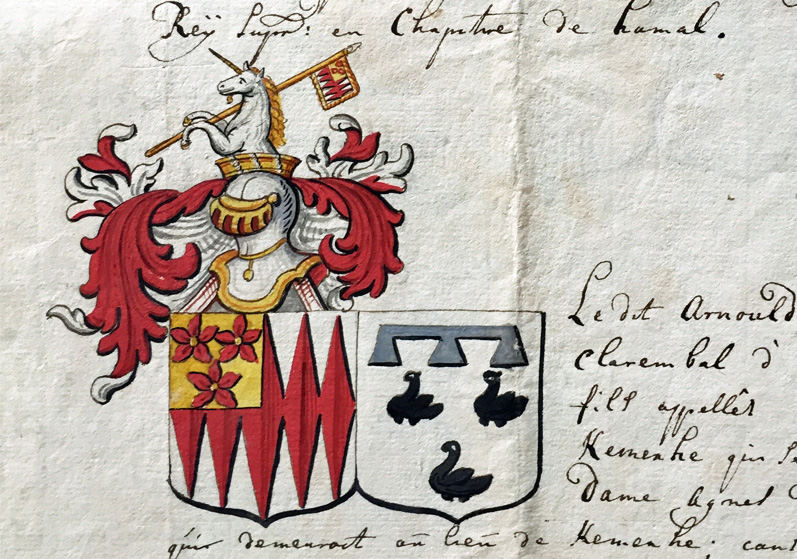 Reÿ Supr: en Chapitre de hamal.
Le dit Arnould
Clarembal d
fils appellés
Kemenhe qui se
Dame Agnes
qui demeuroit au lieu de Kemenhe. cant